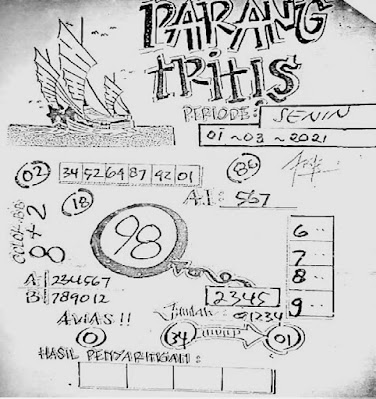 PARANG
TRITIS
PERIODE: SENIN
01 ~ 03 ~ 2021
02 34 52 64 87 92 01 86
18 A.I: 567
COLOK BB
2
+
8
98
6..
7..
8..
9..
A: 234567
B: 789012
2345
Jumlah: 01234
AWAS!!
0 34 01
HASIL PENYARINGAN: